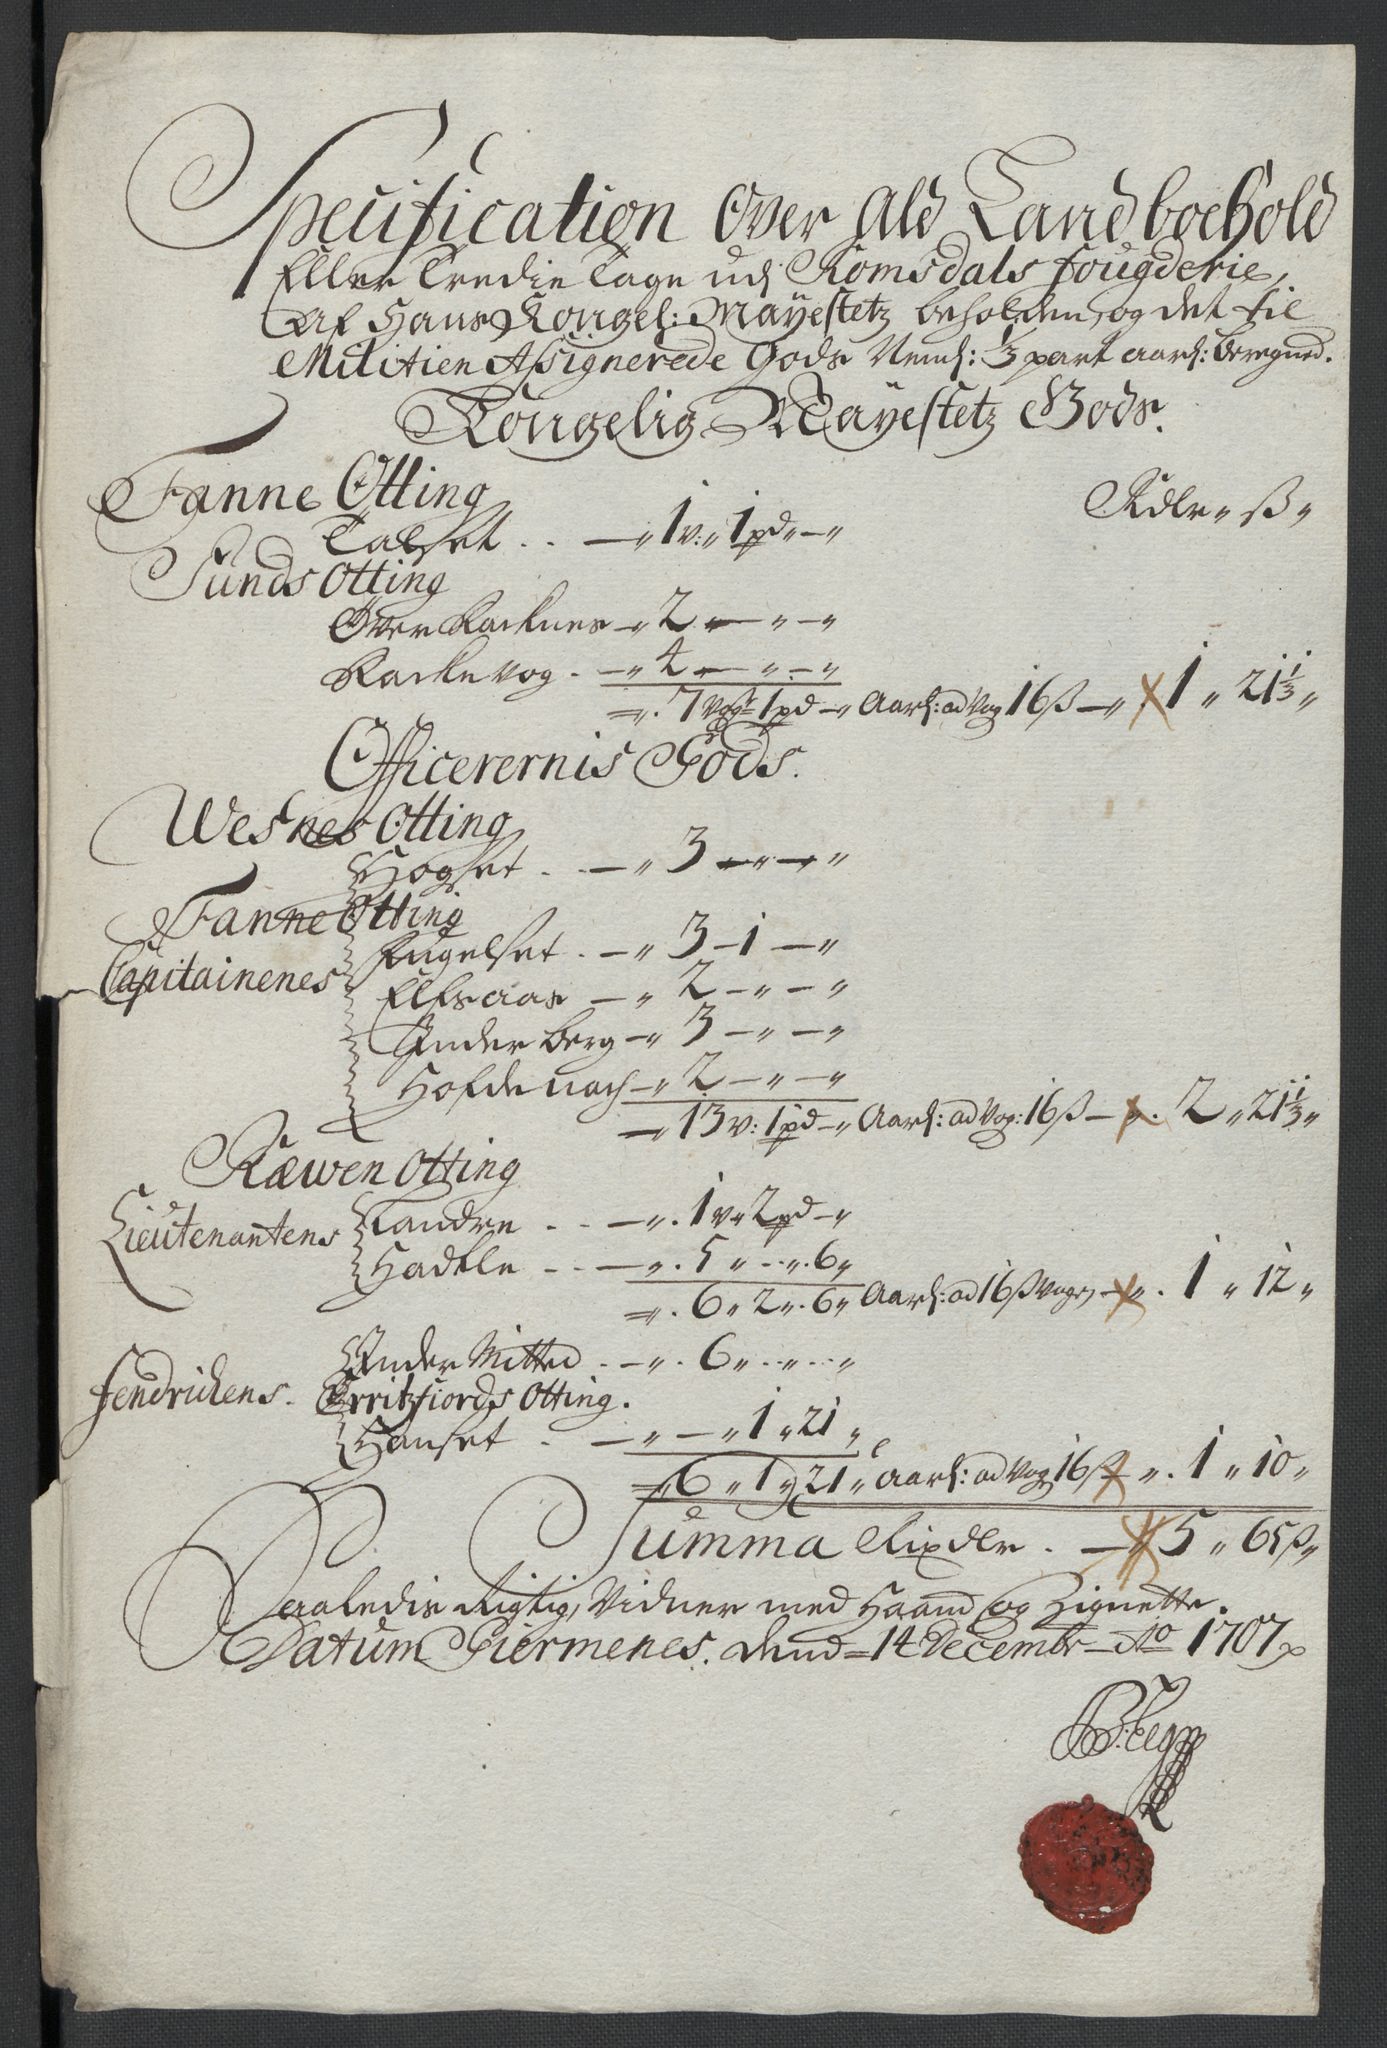 Specification Over Ald Landboehold
Eller Tredie Tage udj Romsdals fougderie,
Af Hans Kongel: Mayestetz beholden, og det til
Militien Assignerede Gods Neml: 1/3 part aarl: beregned.
Kongelig Mayestetz Gods.
Fanne Otting Rdlr „ ß „
Talset . . — „ 1 v: „ 1 pd „ — „
Sunds Otting
Over Racknes — „ 2 — „ — „
Racke vog . — „ 4 — „ — „
— „ . 7 vog 1 pd — „ Aarl: ad Vog 16 ß — „ . 1 „ 21 1/3 „
Officerernis Gods.
Wesnes Otting
Hogset . . — „ 3 — „ — „
Fanne Otting
Capitainenes Fugelset . — „ 3 — 1 — „
Elfsaas — „ 2 — „ — „
Under berg — „ 3 — „ — „
Hofde nach — „ 2 — „ — „
— „ 13 v: 1 pd — „ Aarl: ad Vog: 16 ß — „ . 2 „ 21 1/3 „
Ræwen Otting
Lieutenantens Tandre . . — „ . 1 v „ 2 pd — „
Hadele . . . — „ . 5 „ . . „ . 6 „
= „ . 6 „ 2 „ . 6 „ Aarl: ad 16 ß Vogen — „ . 1 „ 12 „
Under Nitted . — „ . 6 „ . . „ . . „
Fendrichens . Erritzfiords Otting .
Hanset . — „ — „ 1 „ 21 „
= „ 6 „ 1 „ 21 „ Aarl: ad Vog 16 ß „ . 1 „ 10 „
Summa Rixdlr . — „ 5 „ 65 ß „
Saaledis Rigtig, Vidner med Haand og Zignette.
Datum Giermenes. dend = 14 Decembr — Ao 1707